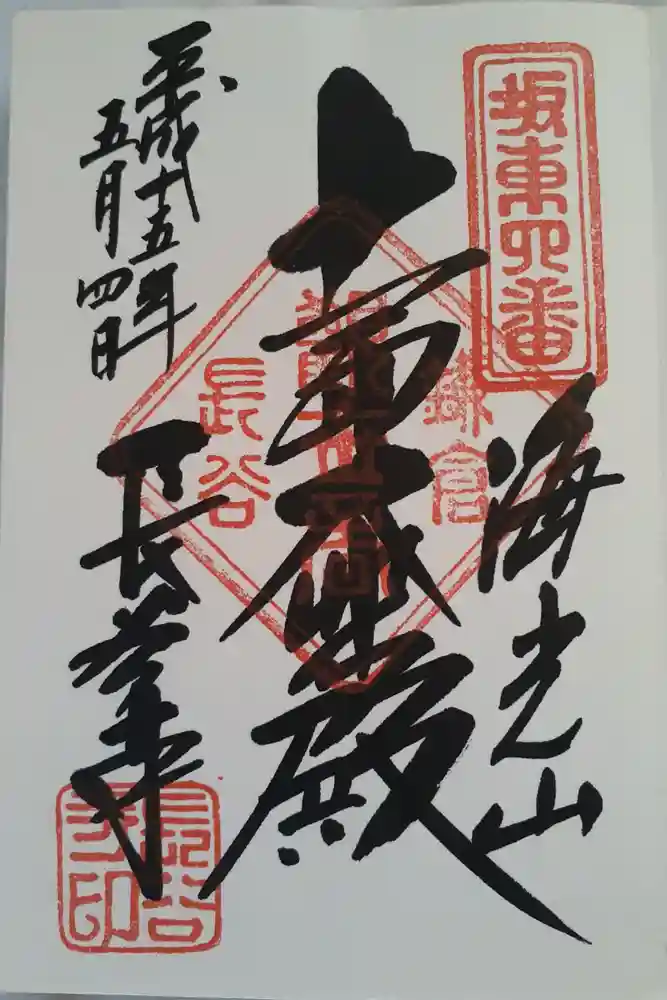 坂東四番
海光山
十一面大悲殿
鎌倉
長谷
平成十五年
五月四日
長谷寺
長谷
寺印